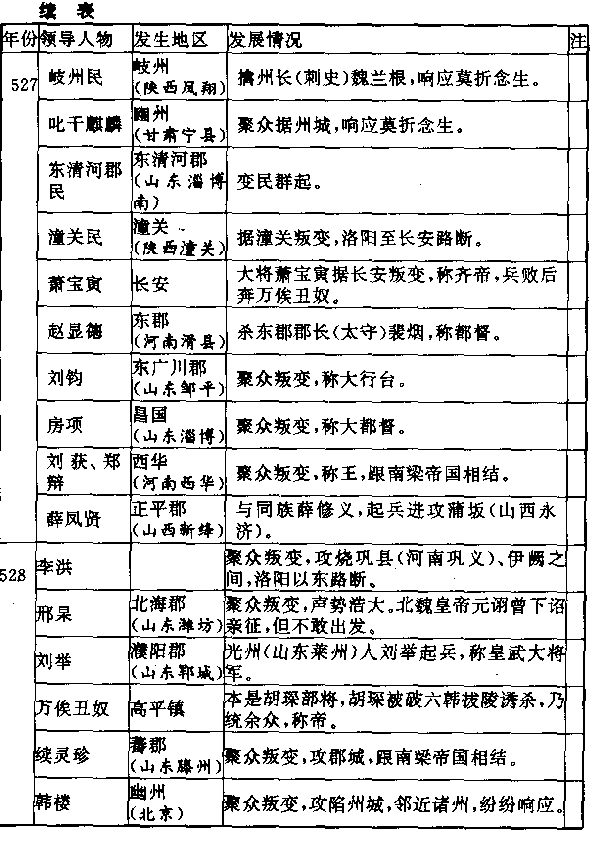 续 表
年份 领导人物 发生地区 发展情况 注
527 岐州民 岐州
(陕西凤翔) 擒州长(刺史)魏兰根,响应莫折念生。
叱干麒麟 豳州
(甘肃宁县) 聚众据州城,响应莫折念生。
东清河郡
民 东清河郡
(山东淄博
南) 变民群起。
潼关民 潼关
(陕西潼关) 据潼关叛变,洛阳至长安路断。
萧宝寅 长安 大将萧宝寅据长安叛变,称齐帝,兵败后
奔万俟丑奴。
赵显德 东郡
(河南滑县) 杀东郡郡长(太守)裴烟,称都督。
刘钧 东广川郡
(山东邹平) 聚众叛变,称大行台。
房项 昌国
(山东淄博) 聚众叛变,称大都督。
刘获、郑
辩 西华
(河南西华) 聚众叛变,称王,跟南梁帝国相结。
薛凤贤 正平郡
(山西新绛) 与同族薛修义,起兵进攻蒲坂(山西永
济)。
528 李洪 聚众叛变,攻烧巩县(河南巩义)、伊阙之
间,洛阳以东路断。
邢杲 北海郡
(山东潍坊) 聚众叛变,声势浩大。北魏皇帝元诩曾下诏
亲征,但不敢出发。
刘举 濮阳郡
(山东鄄城) 光州(山东莱州)人刘举起兵,称皇武大将
军。
万俟丑奴 高平镇 本是胡琛部将,胡琛被破六韩拔陵诱杀,乃
统余众,称帝。
续灵珍 蕃郡
(山东滕州) 聚众叛变,攻郡城,跟南梁帝国相结。
韩楼 幽州
(北京) 聚众叛变,攻陷州城,邻近诸州,纷纷响应。